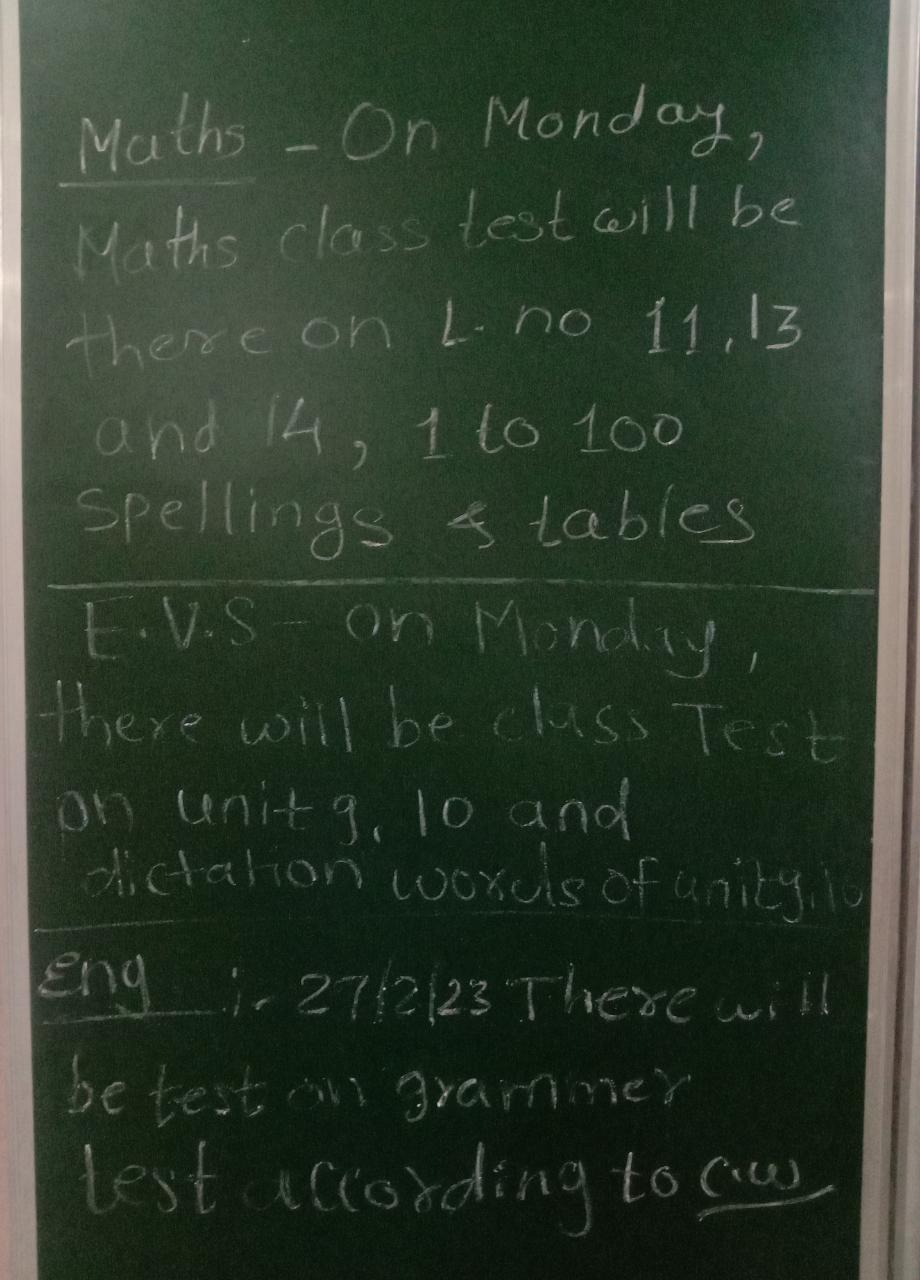 Maths - On Monday,
Maths class test will be
there on L. no 11, 13
and 14, 1 to 100
Spellings & tables
E.V.S - on Monday,
there will be class Test
on unit 9, 10 and
dictation words of unit 9, 10
Eng :- 27/2/23 There will
be test on grammer
test according to c.w